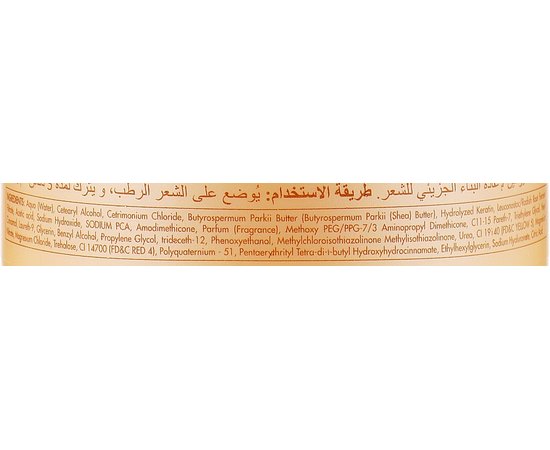 إعادة البناء الجزيئي للشعر. طريقة الاستخدام: يُوضع على الشعر الرطب، و يترك لمدة
INGREDIENTS: Aqua (Water), Cetearyl Alcohol, Cetrimonium Chloride, Butyrospermum Parkii Butter (Butyrospermum Parkii (Shea) Butter), Hydrolyzed Keratin, Leuconostoc/Radish Root Ferment
Filtrate, Acetic acid, Sodium Hydroxide, SODIUM PCA, Amodimethicone, Parfum (Fragrance), Methoxy PEG/PPG-7/3 Aminopropyl Dimethicone, C11-15 Pareth-7, Triethylene Glycol,
Caramel, Laureth-9, Glycerin, Benzyl Alcohol, Propylene Glycol, trideceth-12, Phenoxyethanol, Methylchloroisothiazolinone Methylisothiazolinone, Urea, CI 19140 (FD&C YELLOW 5), Magnesium
Nitrate, Magnesium Chloride, Trehalose, CI 14700 (FD&C RED 4), Polyquaternium - 51, Pentaerythrityl Tetra-di-t-butyl Hydroxyhydrocinnamate, Sodium Hyaluronate, Citric Acid